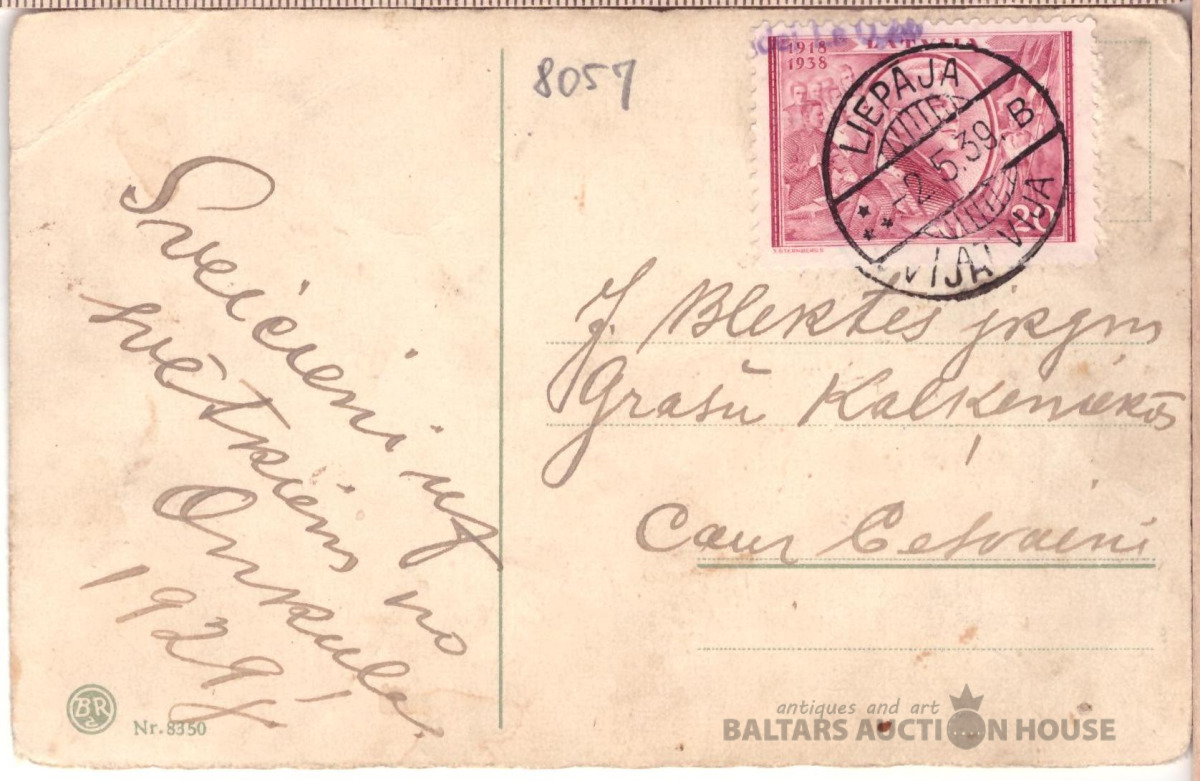 8057
1918
1938
LATVIJA
20
LIEPAJA
-2.5.39. B
LATVIJA
Sveicieni uz
svētkiem no
Onkula.
1929
J. Blektes jkgm
Grašu Kalķeniekos
Caur Cesvaini
BR
Nr. 8350
antiques and art
BALTARS AUCTION HOUSE